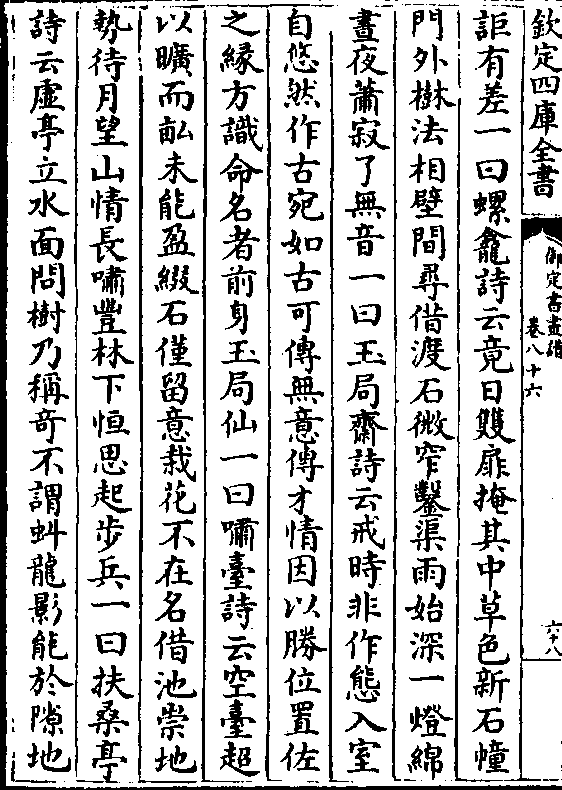 欽定四庫全書
御定書畫譜
卷八十六
六十八
詎有差一曰螺龕詩云竟日雙扉掩其中草色新石幢
門外樹法相壁間尋借渡石微窄鑿渠雨始深一燈綿
晝夜蕭寂了無音一曰玉局齋詩云戒時非作態入室
自悠然作古宛如古可傳無意傳才情因以勝位置佐
之緣方識命名者前身玉局仙一曰嘯臺詩云空臺超
以曠而畆未能盈綴石僅留意栽花不在名借池崇地
勢待月望山情長嘯豐林下恒思起步兵一曰扶桑亭
詩云虛亭立水面問樹乃稱竒不謂虯龍影能於隙地